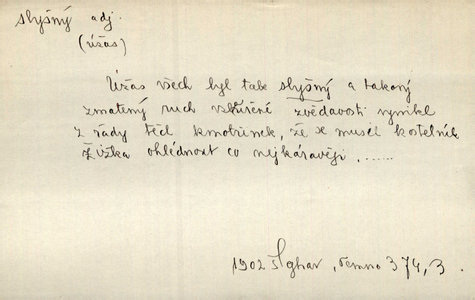 slyšný adj.
(úžas)
Úžas všech byl tak slyšný a takový
zmatený ruch vzbuřené zvědavosti vynikl
z řady těch kmotřinek, že se musel kostelník
Žižka ohlédnout co nejkáravěji .......
1902 Temno 374, 3.